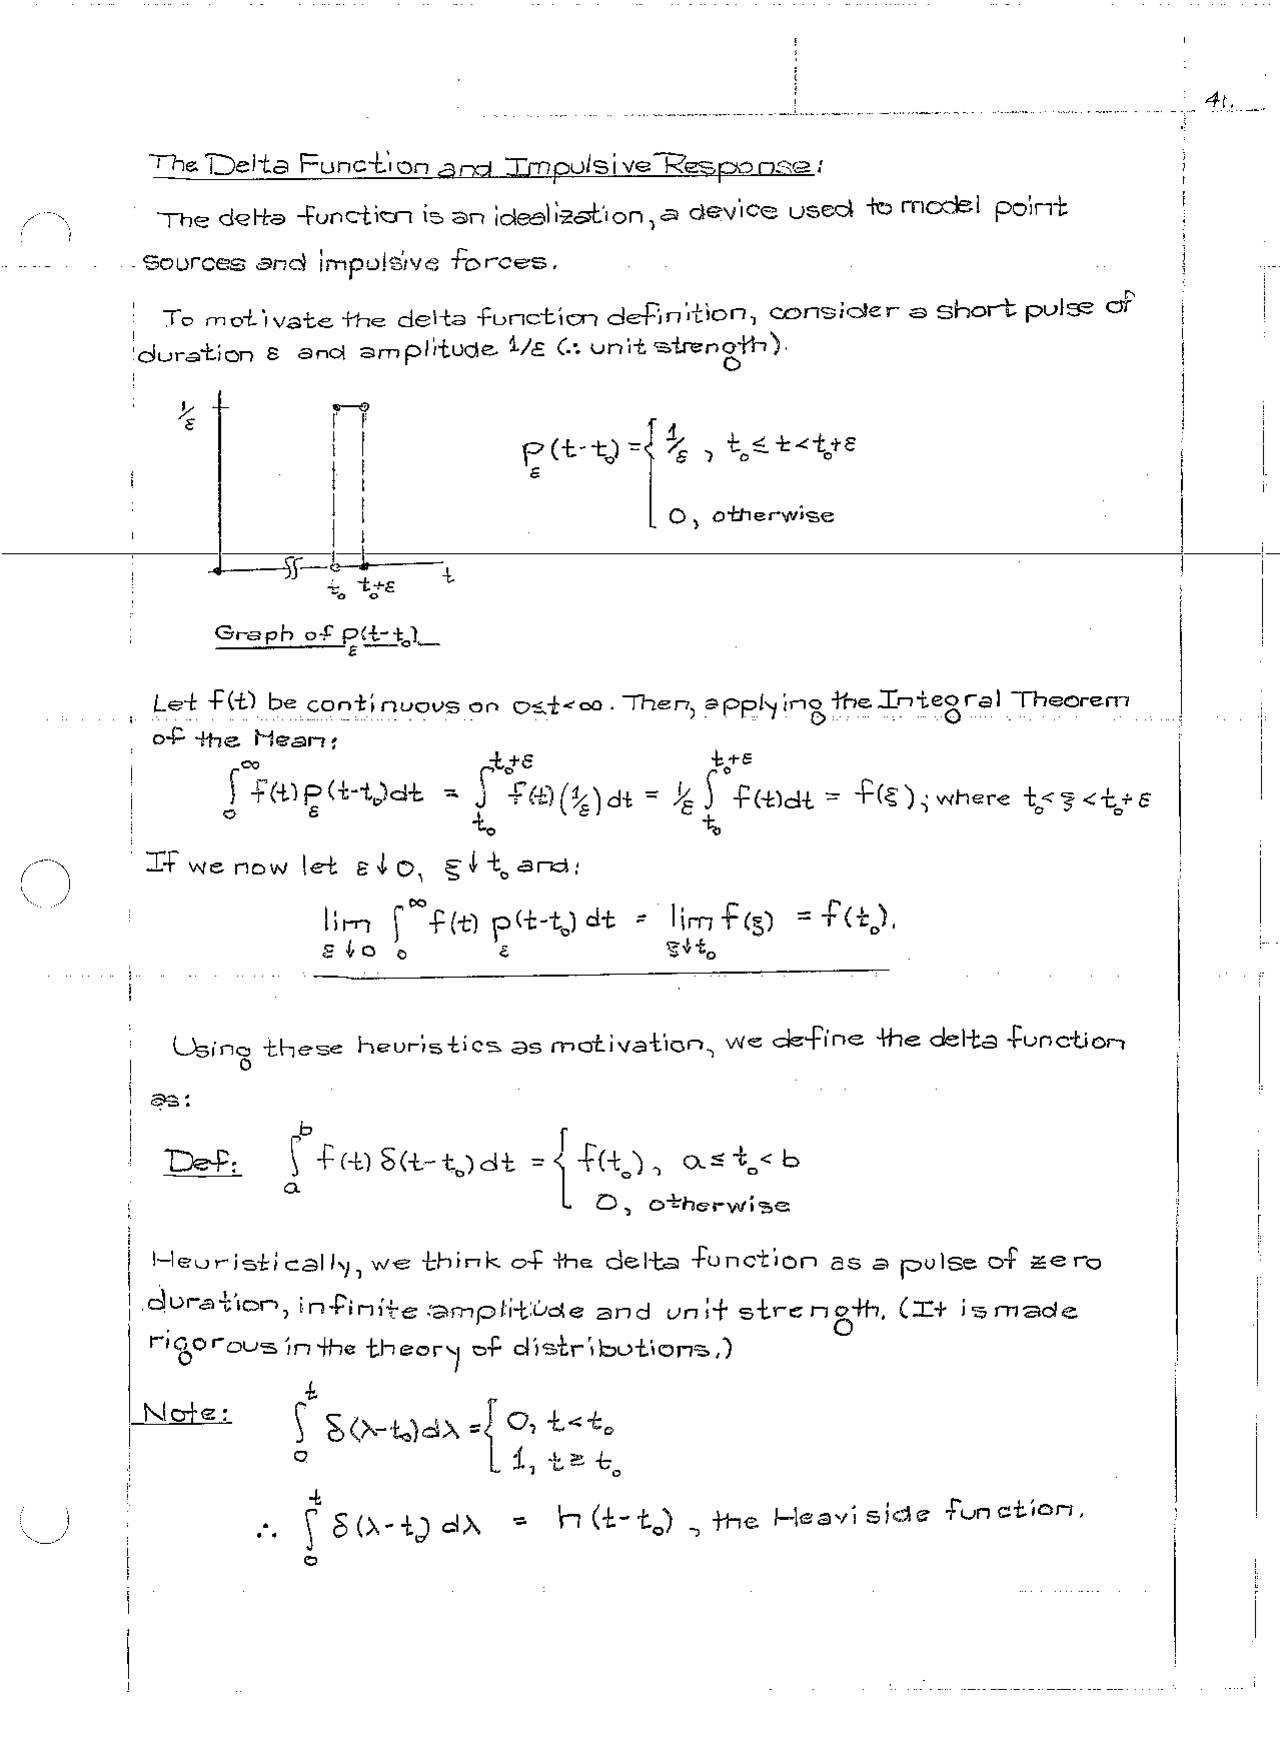 41.
The Delta Function and Impulsive Response:
The delta function is an idealization, a device used to model point
sources and impulsive forces.
To motivate the delta function definition, consider a short pulse of
duration ε and amplitude 1/ε (∴ unit strength).
1/ε
p_ε(t-t₀) = { 1/ε, t₀ ≤ t < t₀+ε
0, otherwise
t₀ t₀+ε t
Graph of p_ε(t-t₀)
Let f(t) be continuous on 0≤t<∞. Then, applying the Integral Theorem
of the Mean:
∫₀^∞ f(t) p_ε(t-t₀)dt = ∫_{t₀}^{t₀+ε} f(t)(1/ε)dt = 1/ε ∫_{t₀}^{t₀+ε} f(t)dt = f(ξ); where t₀<ξ<t₀+ε
If we now let ε↓0, ξ↓t₀ and:
lim_{ε↓0} ∫₀^∞ f(t) p_ε(t-t₀) dt = lim_{ξ↓t₀} f(ξ) = f(t₀).
Using these heuristics as motivation, we define the delta function
as:
Def: ∫_a^b f(t) δ(t-t₀)dt = { f(t₀), a ≤ t₀ < b
0, otherwise
Heuristically, we think of the delta function as a pulse of zero
duration, infinite amplitude and unit strength. (It is made
rigorous in the theory of distributions.)
Note: ∫₀^t δ(λ-t₀)dλ = { 0, t<t₀
1, t≥t₀
∴ ∫₀^t δ(λ-t₀) dλ = h(t-t₀), the Heaviside function.